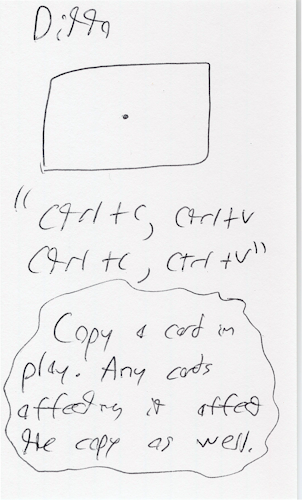 Ditto
"Ctrl+C, Ctrl+V
Ctrl+C, Ctrl+V"
Copy a card in
play. Any cards
affecting it affect
the copy as well.